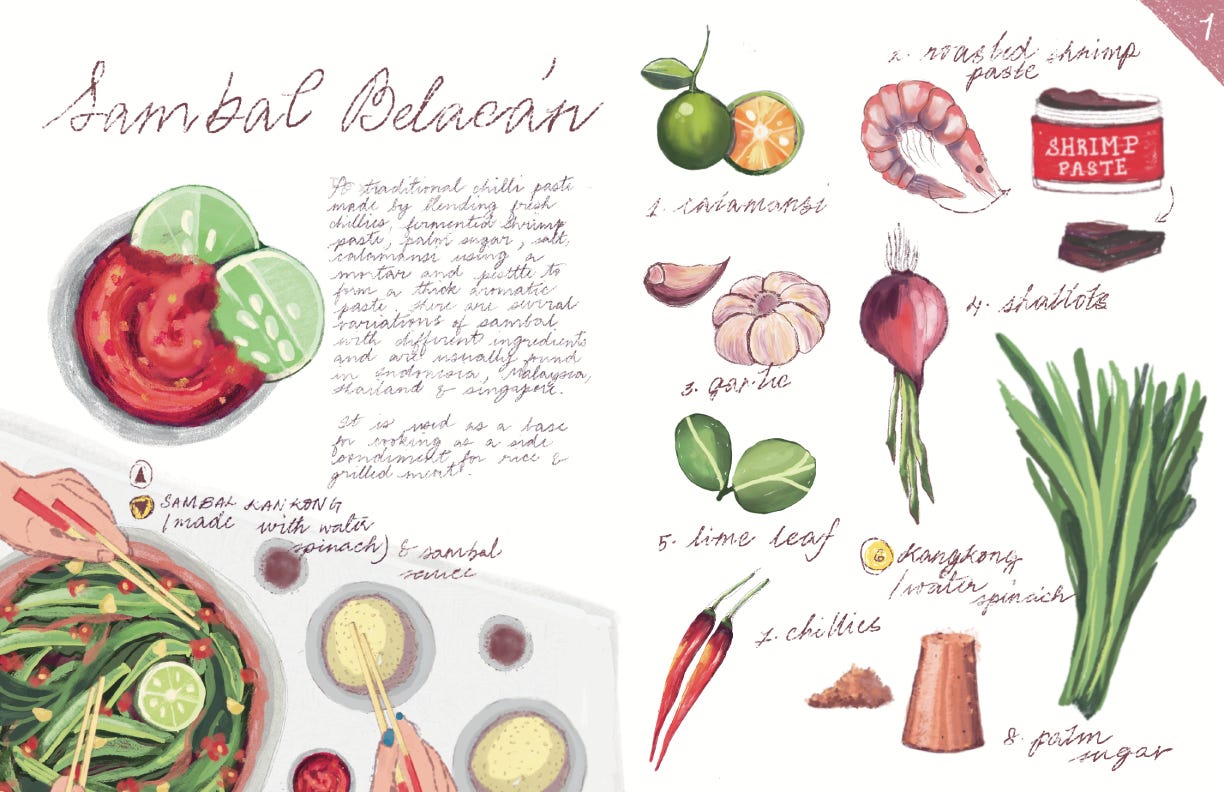 Sambal Belacán
A traditional chilli paste
made by blending fresh
chillies, fermented shrimp
paste, palm sugar, salt,
calamansi using a
mortar and pestle to
form a thick aromatic
paste. There are several
variations of sambal
with different ingredients
and are usually found
in Indonesia, Malaysia,
Thailand & Singapore.
It is used as a base
for cooking as a side
condiment for rice &
grilled meat.
SAMBAL KANKONG
/made with water
spinach) & sambal
sauce
1
1. calamansi
2. roasted shrimp
paste
SHRIMP
PASTE
3. garlic
4. shallots
5. lime leaf
6 Kangkong
/water
spinach
7. chillies
8. palm
sugar